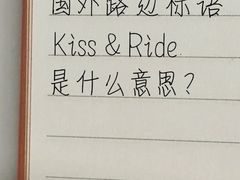 国外路边标语
Kiss & Ride
是什么意思?